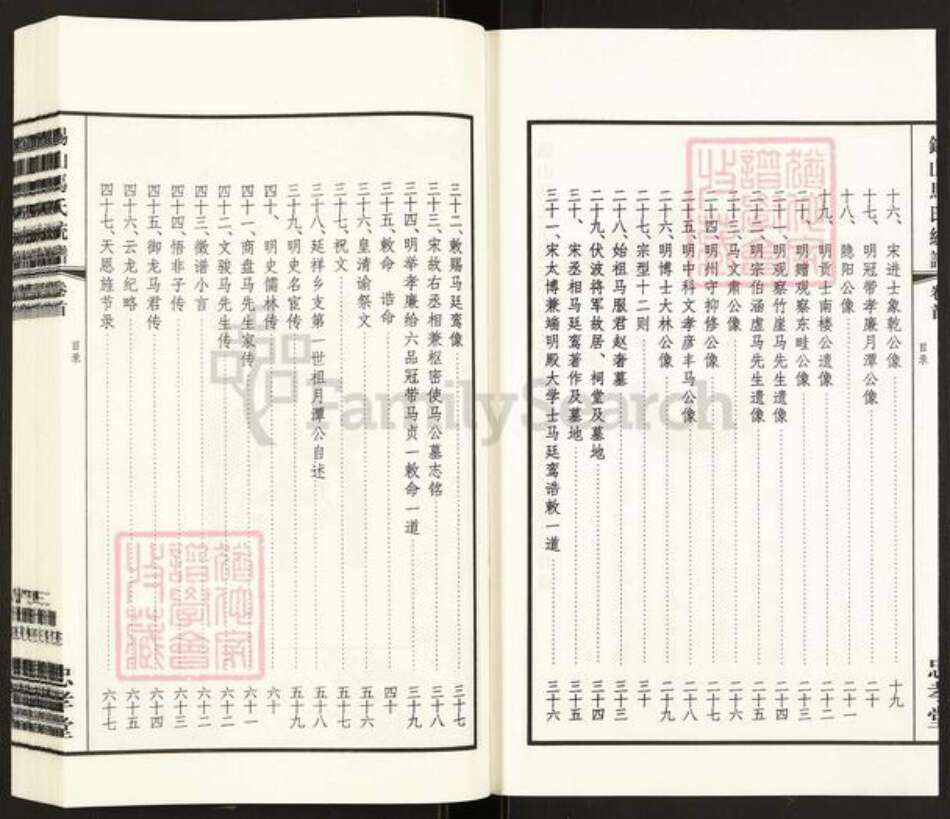 目录
十六、宋进士象乾公像 十九
十七、明冠带孝廉月潭公像 二十
十八、隐阳公像 二十一
十九、明贡士南楼公遗像 二十二
二十、明赠观察东畦公像 二十三
二十一、明观察竹崖马先生遗像 二十四
二十二、明宗伯涵虚马先生遗像 二十五
二十三、马文肃公像 二十六
二十四、明州守抑修公像 二十七
二十五、明中科文孝彦丰马公像 二十八
二十六、明博士大林公像 二十九
二十七、宗型十二则 三十
二十八、始祖马服君赵奢墓 三十三
二十九、伏波将军故居、祠堂及墓地 三十四
三十、宋丞相马廷鸾著作及墓地 三十五
三十一、宋太博兼端明殿大学士马廷鸾诰敕一道 三十六
忠孝堂
三十二、敕赐马廷鸾像 三十七
三十三、宋故右丞相兼枢密使马公墓志铭 三十八
三十四、明举孝廉给六品冠带马贞一敕命一道 三十九
三十五、敕命 诰命 四十
三十六、皇清谕祭文 五十六
三十七、祝文 五十七
三十八、延祥乡支第一世祖月潭公自述 五十八
三十九、明史名宦传 五十九
四十、明史儒林传 六十
四十一、商盘马先生家传 六十一
四十二、文骏马先生传 六十二
四十三、徵谱小言 六十二
四十四、悟非子传 六十三
四十五、御龙马君传 六十四
四十六、云龙纪略 六十五
四十七、天恩旌节录 六十七
卷首
目录
忠孝堂
FamilySearch